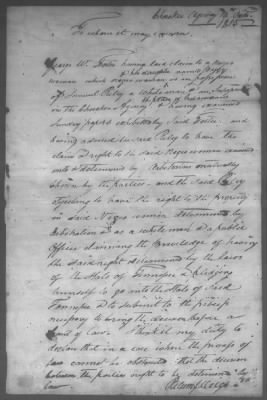 Cherokee Agency 14th Octr.
1815
To whom it may concern
George W. Foster having laid claim to a negro
& her daughter named
woman which negro woman in possession
of Samuel Riley a white man & an Interpreter
on the Cherokee Agency & the father of
having examined
Sundry papers exhibited by Said Foster and
having advised the said Riley to have the
claim & right to the said Negro woman
into & determined by Arbitrators mutually
chosen by the parties and the Said Riley
objecting to have the right to the property
in said Negro woman determined by
Arbitration & as a white man & a public
Officer claiming the of having
the said right determined by the laws
of the State of Tennessee & pledging
himself to go into the State of Said
Tennessee & to submit to the process
necessary to bring the decision before a
Court of Law. I think it my duty to
declare that in a case where the proofs of
law cannot be obtained that the decision
between the parties ought to be determined by
law
Return J. Meigs